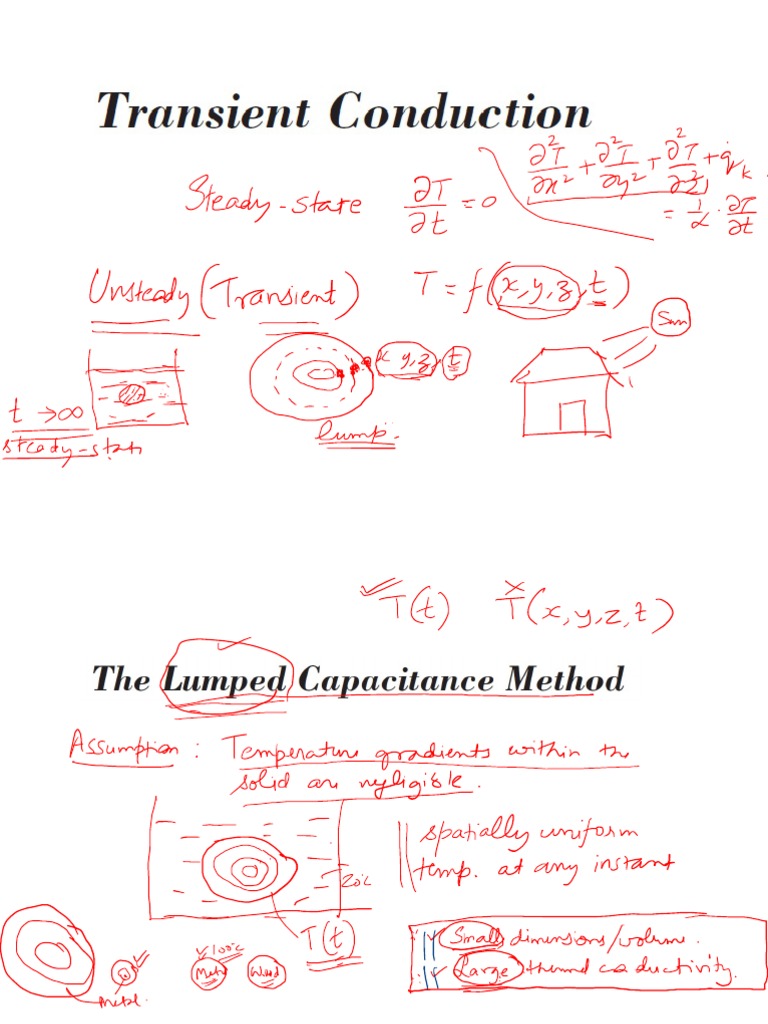 Transient Conduction
Steady-state ∂T/∂t = 0
∂²T/∂x² + ∂²T/∂y² + ∂²T/∂z² + q̇/k
= 1/α · ∂T/∂t
Unsteady (Transient) T = f(x, y, z, t)
Sun
x y, z, t
t → ∞
steady-state
lump.
T(t) T(x, y, z, t)
The Lumped Capacitance Method
Assumption : Temperature gradients within the
solid are negligible.
spatially uniform
temp. at any instant
20°C
T(t)
100°C
Metal Wood
Metal.
Small dimensions/volume.
Large thermal conductivity.